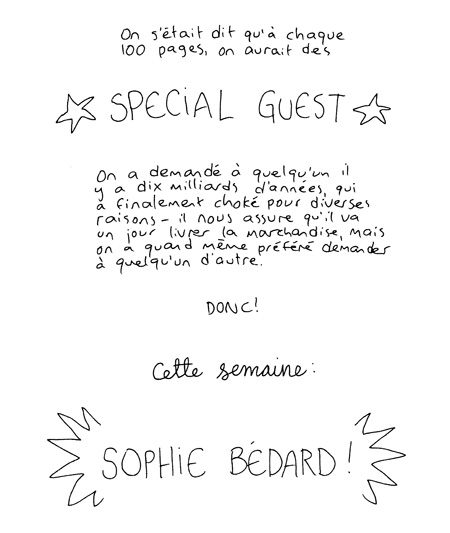 On s'était dit qu'à chaque
100 pages, on aurait des
SPECIAL GUEST
On a demandé à quelqu'un il
y a dix milliards d'années, qui
a finalement choké pour diverses
raisons - il nous assure qu'il va
un jour livrer la marchandise, mais
on a quand même préféré demander
à quelqu'un d'autre.
DONC!
Cette semaine:
SOPHIE BÉDARD!